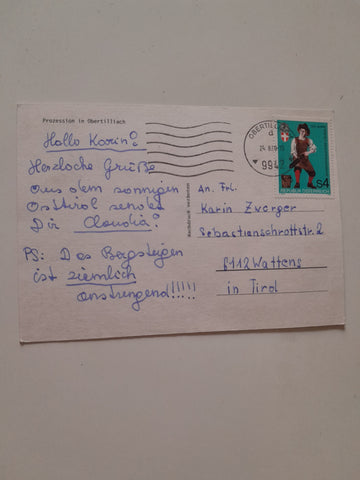 Prozession in Obertilliach
Hallo Karin!
Herzliche Grüße
aus dem sonnigen
Osttirol sendet
Dir Claudia!
PS: Das Bergsteigen
ist ziemlich
anstrengend!!!!!
Nachdruck verboten
9942
S4
REPUBLIK ÖSTERREICH
An. Frl.
Karin Zwerger
Sebastianschrottstr. 2
6112 Wattens
in Tirol